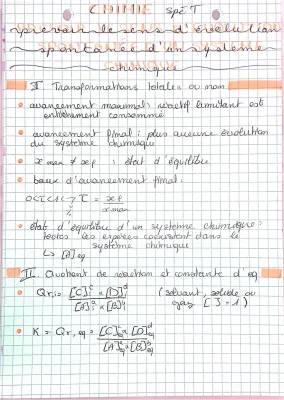 CHIMIE spé T
prévoir le sens d'évolution
spontanée d'un système
chimique
I Transformations totales ou non
• avancement maximal: réactif limitant est
entièrement consommé
• avancement final: plus aucune évolution
du système chimique
• x max ≠ xf : état d'équilibre
• taux d'avancement final:
τ = xf / x max
• état d'équilibre d'un système chimique:
toutes les espèces coexistent dans le
système chimique
↳ [A]éq
II Quotient de réaction et constante d'éq
• Qr,i = [C]ᶜi × [D]ᵈi / [A]ᵃi × [B]ᵇi (solvant, solide ou
gaz [ ] = 1)
• K = Qr,éq = [C]ᶜéq × [D]ᵈéq / [A]ᵃéq × [B]ᵇéq